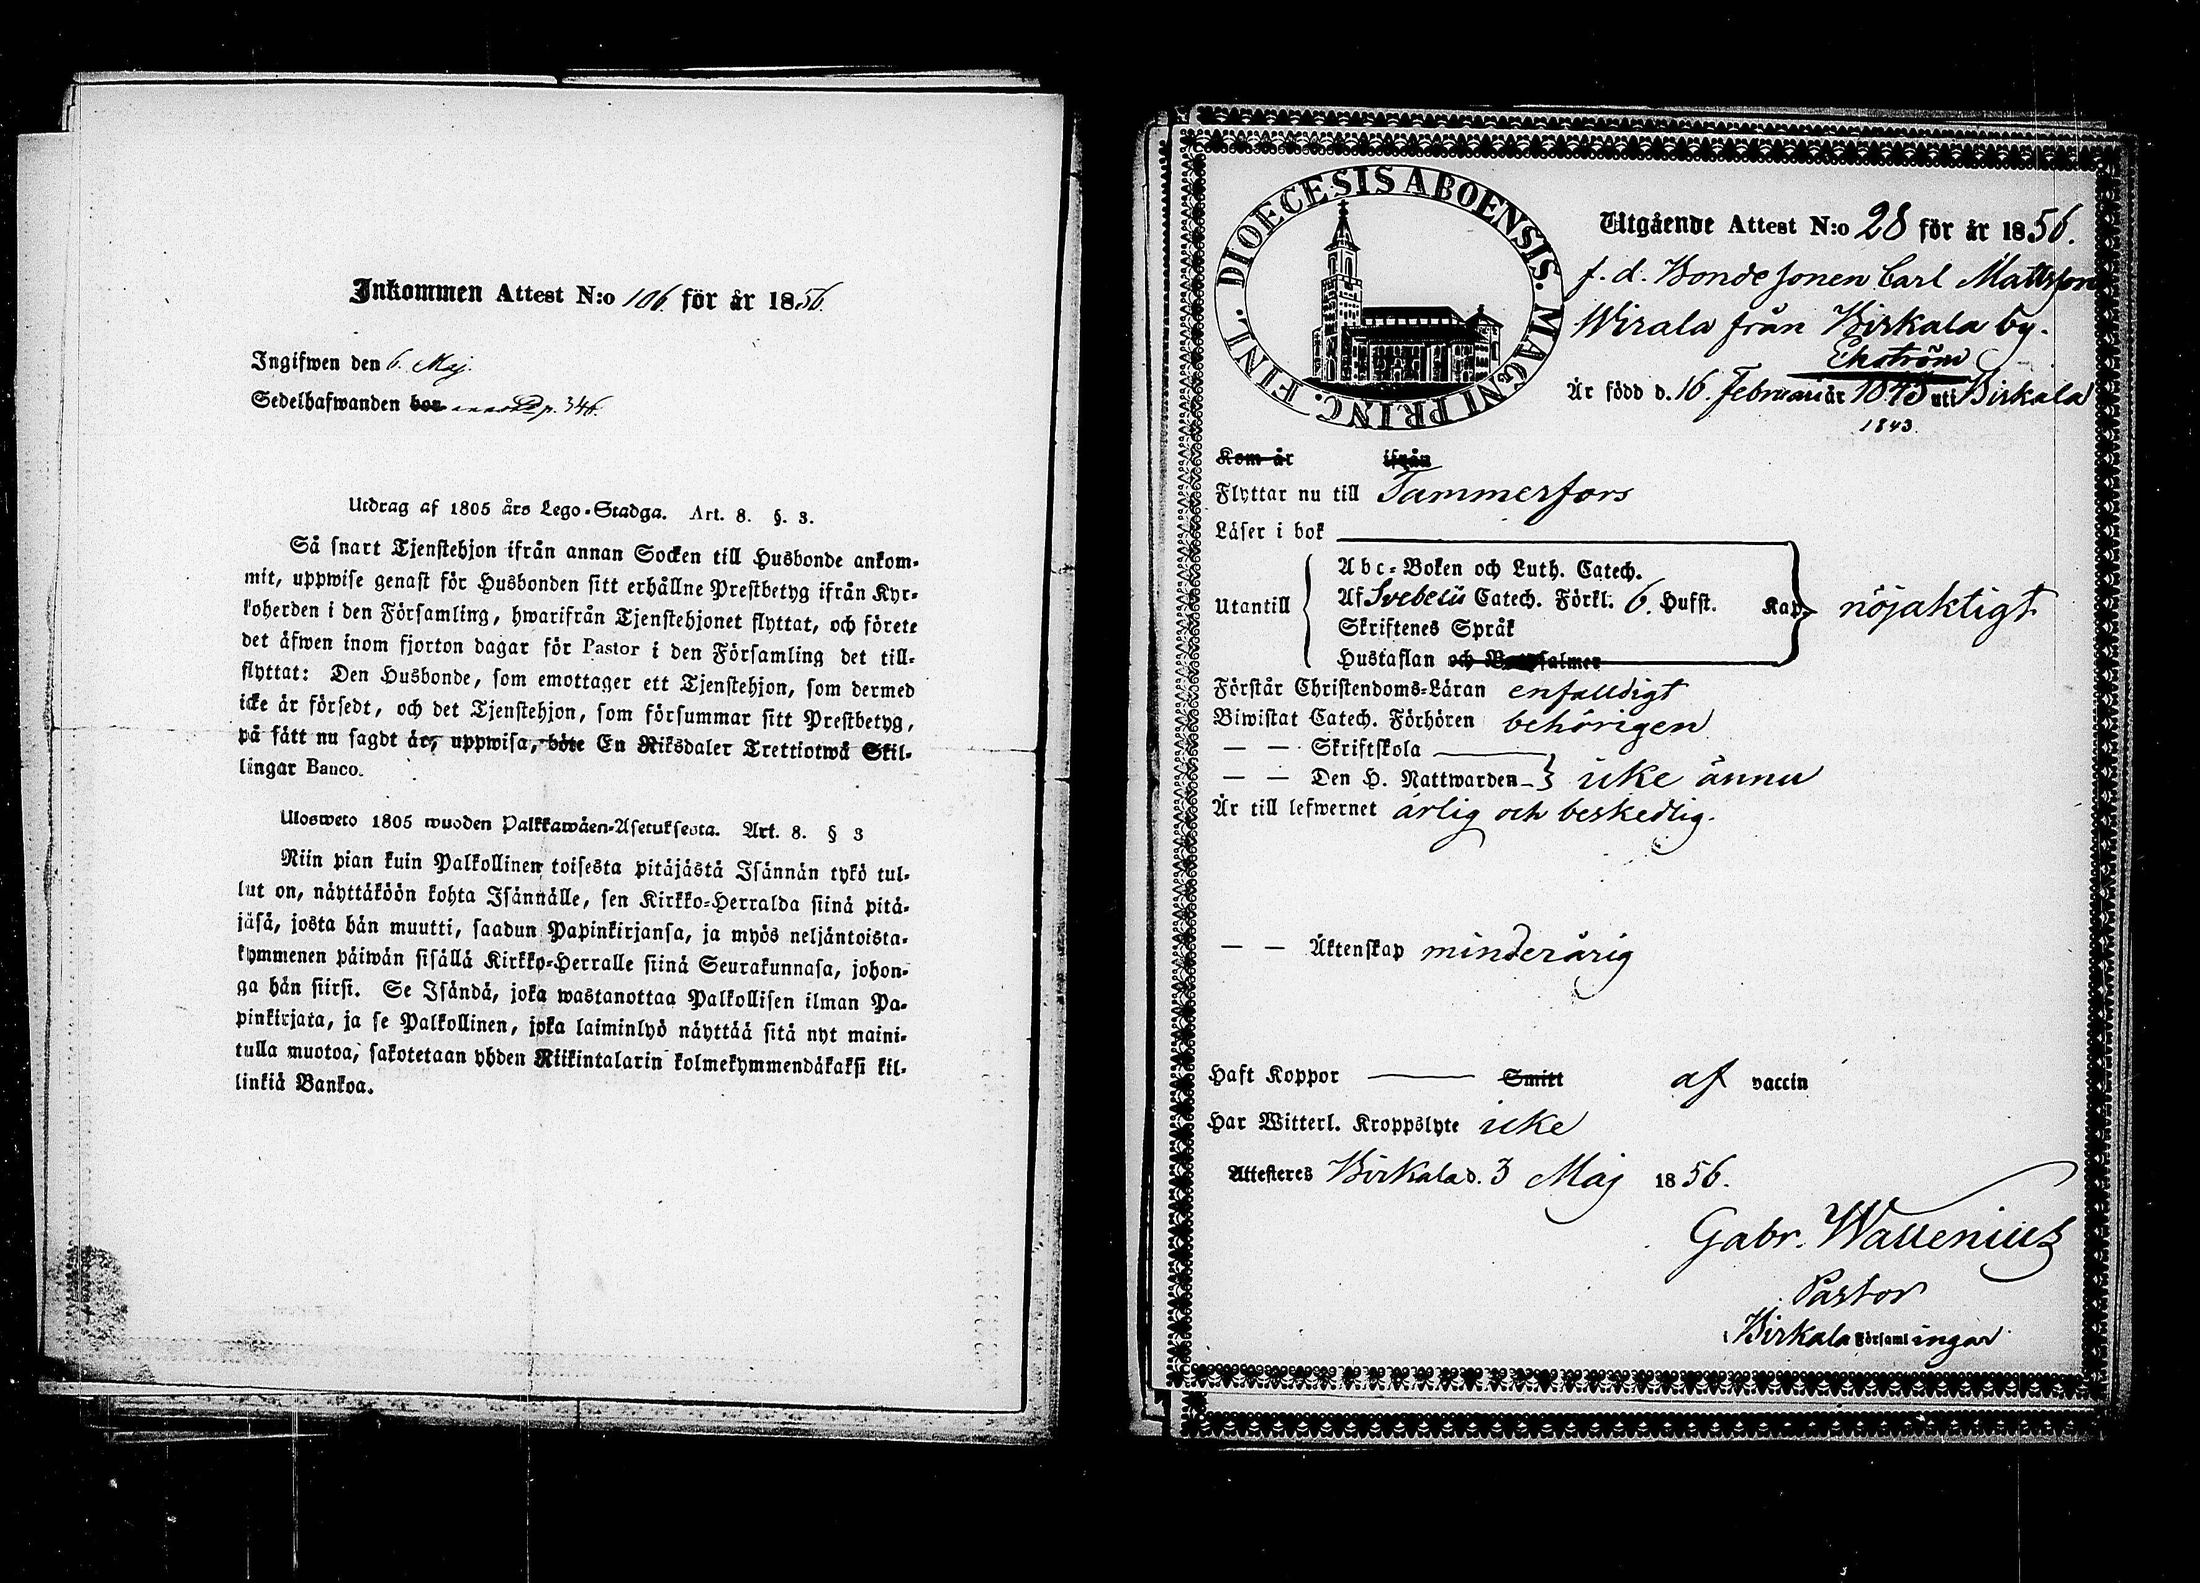 Inkommen Attest N:o 106. för år 1856.
Ingifwen den 6. Maj.
Sedelhafwanden bor p. 346.
Utdrag af 1805 års Lego-Stadga. Art. 8. §. 3.
Så snart Tjenstehjon ifrån annan Socken till Husbonde ankom-
mit, uppwise genast för Husbonden sitt erhållne Prestbetyg ifrån Kyr-
koherden i den Församling, hwarifrån Tjenstehjonet flyttat, och förete
det äfwen inom fjorton dagar för Pastor i den Församling det till-
flyttat: Den Husbonde, som emottager ett Tjenstehjon, som dermed
icke är försedt, och det Tjenstehjon, som försummar sitt Prestbetyg,
på sätt nu sagdt är, uppwisa, böte En Riksdaler Trettiotwå Skil-
lingar Banco.
Ulosweto 1805 wuoden Palkkawäen-Asetuksesta. Art. 8. § 3
Niin pian kuin Palkollinen toisesta pitäjästä Isännän tykö tul-
lut on, näyttäköön kohta Isännälle, sen Kirkko-Herralda siinä pitä-
jäsä, josta hän muutti, saadun Papinkirjansa, ja myös neljäntoista-
kymmenen päiwän sisällä Kirkko-Herralle siinä Seurakunnasa, johon-
ga hän siirsi. Se Isändä, joka wastanottaa Palkollisen ilman Pa-
pinkirjata, ja se Palkollinen, joka laiminlyö näyttää sitä nyt maini-
tulla muotoa, sakotetaan yhden Riikintalarin kolmekymmendäkaksi kil-
linkiä Bankoa.
DIOECESIS ABOENSIS. MAGNI PRINC. FINL.
Utgående Attest N:o 28 för år 1856.
f. d. Bondesonen Carl Mattsson
Wirala från Birkala by.
Ekström
Är född d. 16. Februari år 1843 uti Birkala
1843.
Kom år ifrån
Flyttar nu till Tammerfors
Läser i bok
Abc-Boken och Luth. Catech.
Utantill Af Svebelii Catech. Förkl. 6. Hufst. Kap. nöjaktigt
Skriftenes Språk
Hustaflan och Botpsalmer
Förstår Christendoms-Läran enfalldigt
Biwistat Catech. Förhören behörigen
— — Skriftskola
— — Den H. Nattwarden icke ännu
Är till lefwernet ärlig och beskedlig.
— — Äktenskap minderårig
Haft Koppor Smitt af vaccin
Har Witterl. Kroppslyte icke
Attesteres Birkala d. 3 Maj 1856.
Gabr. Wallenius
Pastor
Birkala Församlingar